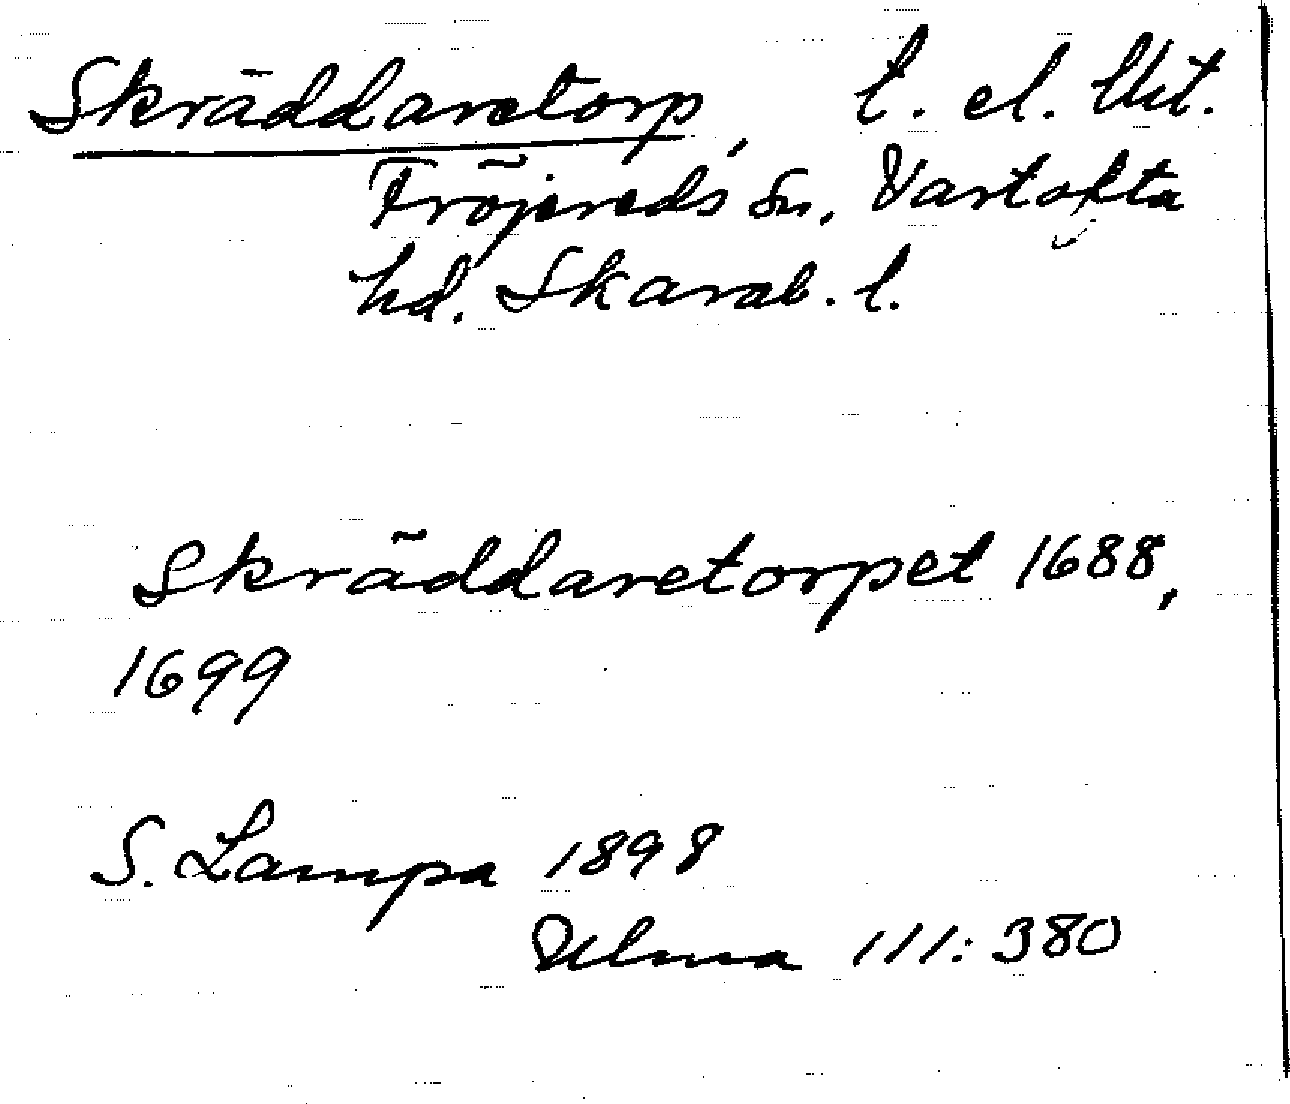 Skräddaretorp, t. el. Utt.
Fröjereds sn, Vartofta
hd. Skarab. l.
Skräddaretorpet 1688,
1699
S. Lampa 1898
Ulma 111:380